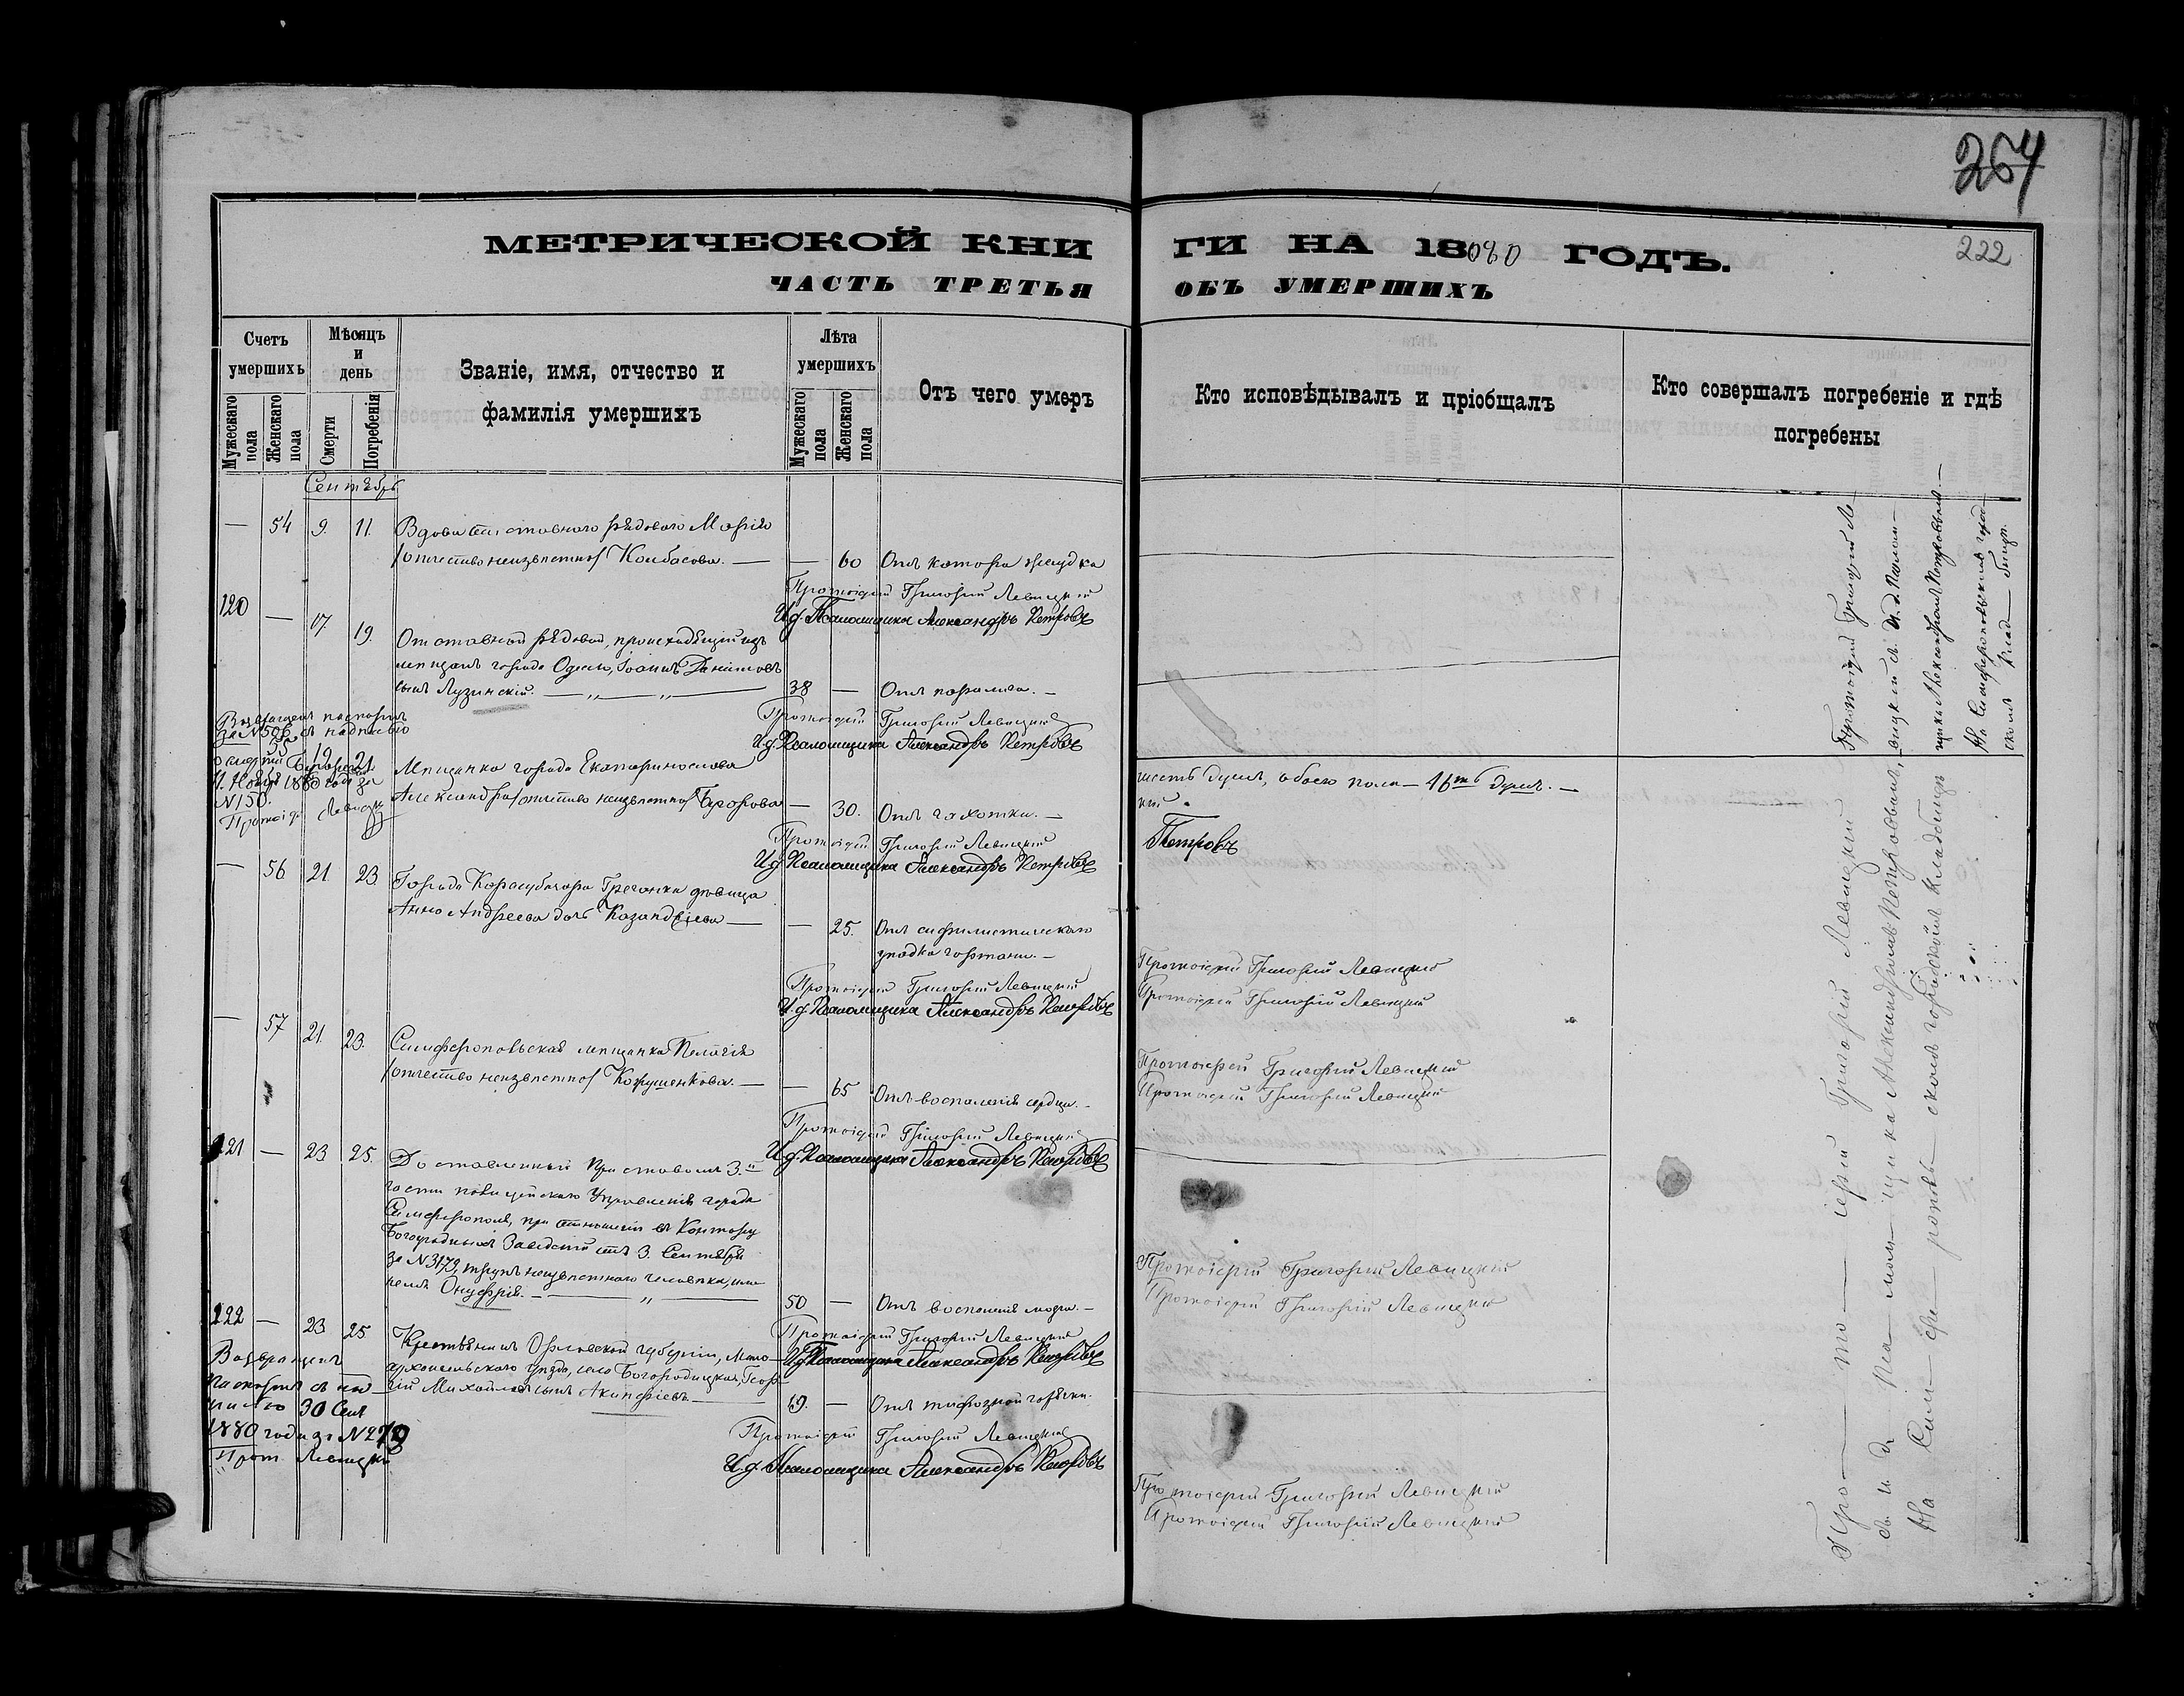 264
222
МЕТРИЧЕСКОЙ КНИ ГИ НА 18080 ГОДЪ.
ЧАСТЬ ТРЕТЬЯ ОБЪ УМЕРШИХЪ
Счетъ умершихъ
Мужескаго пола
Женскаго пола
Мѣсяцъ и день
Смерти
Погребенія
Званіе, имя, отчество и
фамилія умершихъ
Лѣта умершихъ
Мужескаго пола
Женскаго пола
Отъ чего умеръ
Кто исповѣдывалъ и пріобщалъ
Кто совершалъ погребеніе и гдѣ
погребены
Сентябрь
— 54 9. 11. Вдова отставного рядового Марія
/отчество неизвѣстно/ Колбасова. — — 60 Отъ катара желудка
Протоіерей Григорій Левицкій
И.д. Псаломщика Александръ Петровъ
120 — 17 19. Отставной рядовой, происходящій изъ
мѣщанъ города Одессы, Іоаннъ Даніиловъ
сынъ Лузинскій. — „ — „ — 38 — Отъ паралича. —
Протоіерей Григорій Левицкій
И.д. Псаломщика Александръ Петровъ
Возвращенъ паспортъ
за N 596 съ надписью
о смерти
11. Ноября 1880 года за
N 150.
Протоіер. Левицкій
— 55 19 21. Мѣщанка города Екатеринослава
Александра /отчество неизвѣстно/ — 30. Отъ чахотки. —
Протоіерей Григорій Левицкій
И.д. Псаломщика Александръ Петровъ
— 56 21. 23. Города Карасубазара Гречанка дѣвица
Анна Андреева дочь — — 25. Отъ сифилистическаго
упадка гортани. —
Протоіерей Григорій Левицкій
И.д. Псаломщика Александръ Петровъ
— 57 21. 23. Симферопольская мѣщанка Пелагія
/отчество неизвѣстно/ Кожушенкова. — — 65 Отъ воспаленія сердца. —
Протоіерей Григорій Левицкій
И.д. Псаломщика Александръ Петровъ
121 — 23 25. Доставленный Приставомъ 3.й
части полицейскаго Управленія города
Симферополя, при отношеніи въ Контору
Богоугодныхъ Заведеній отъ 3. Сентября
за N 3179, трупъ неизвѣстнаго человѣка, име-
немъ Онуфрія. — „ — 50 — Отъ воспаленія мозга. —
Протоіерей Григорій Левицкій
И.д. Псаломщика Александръ Петровъ
122 — 23 25 Крестьянинъ Орловской губерніи, Мало-
архангельскаго уѣзда, села Богородицкаго, Геор-
гій Михайловъ сынъ Акинфіевъ — 49. — Отъ тифозной горячки.
Протоіерей Григорій Левицкій
И.д. Псаломщика Александръ Петровъ
Возвращенъ
паспортъ съ над
писью 30 Сент
1880 года за N 279
Прот. Левицкій
шесть душъ, обоего пола — 16ть душъ. —
кій.
Петровъ
Протоіерей Григорій Левицкій
Протоіерей Григорій Левицкій
Протоіерей Григорій Левицкій
Протоіерей Григорій Левицкій
Протоіерей Григорій Левицкій
Протоіерей Григорій Левицкій
Протоіерей Григорій Левицкій
Протоіерей Григорій Левицкій
Протоіерей Григорій Ле—
вицкій съ И. д. Псалом—
щика Александромъ Петровымъ—
На Симферопольскомъ город—
скомъ клад— бищѣ.
Про — то — іерей Григорій Левицкій
съ и. д. Пса — лом — щика Александромъ Петровымъ,
На Сим — фе — рополь — скомъ городскомъ кладбищѣ